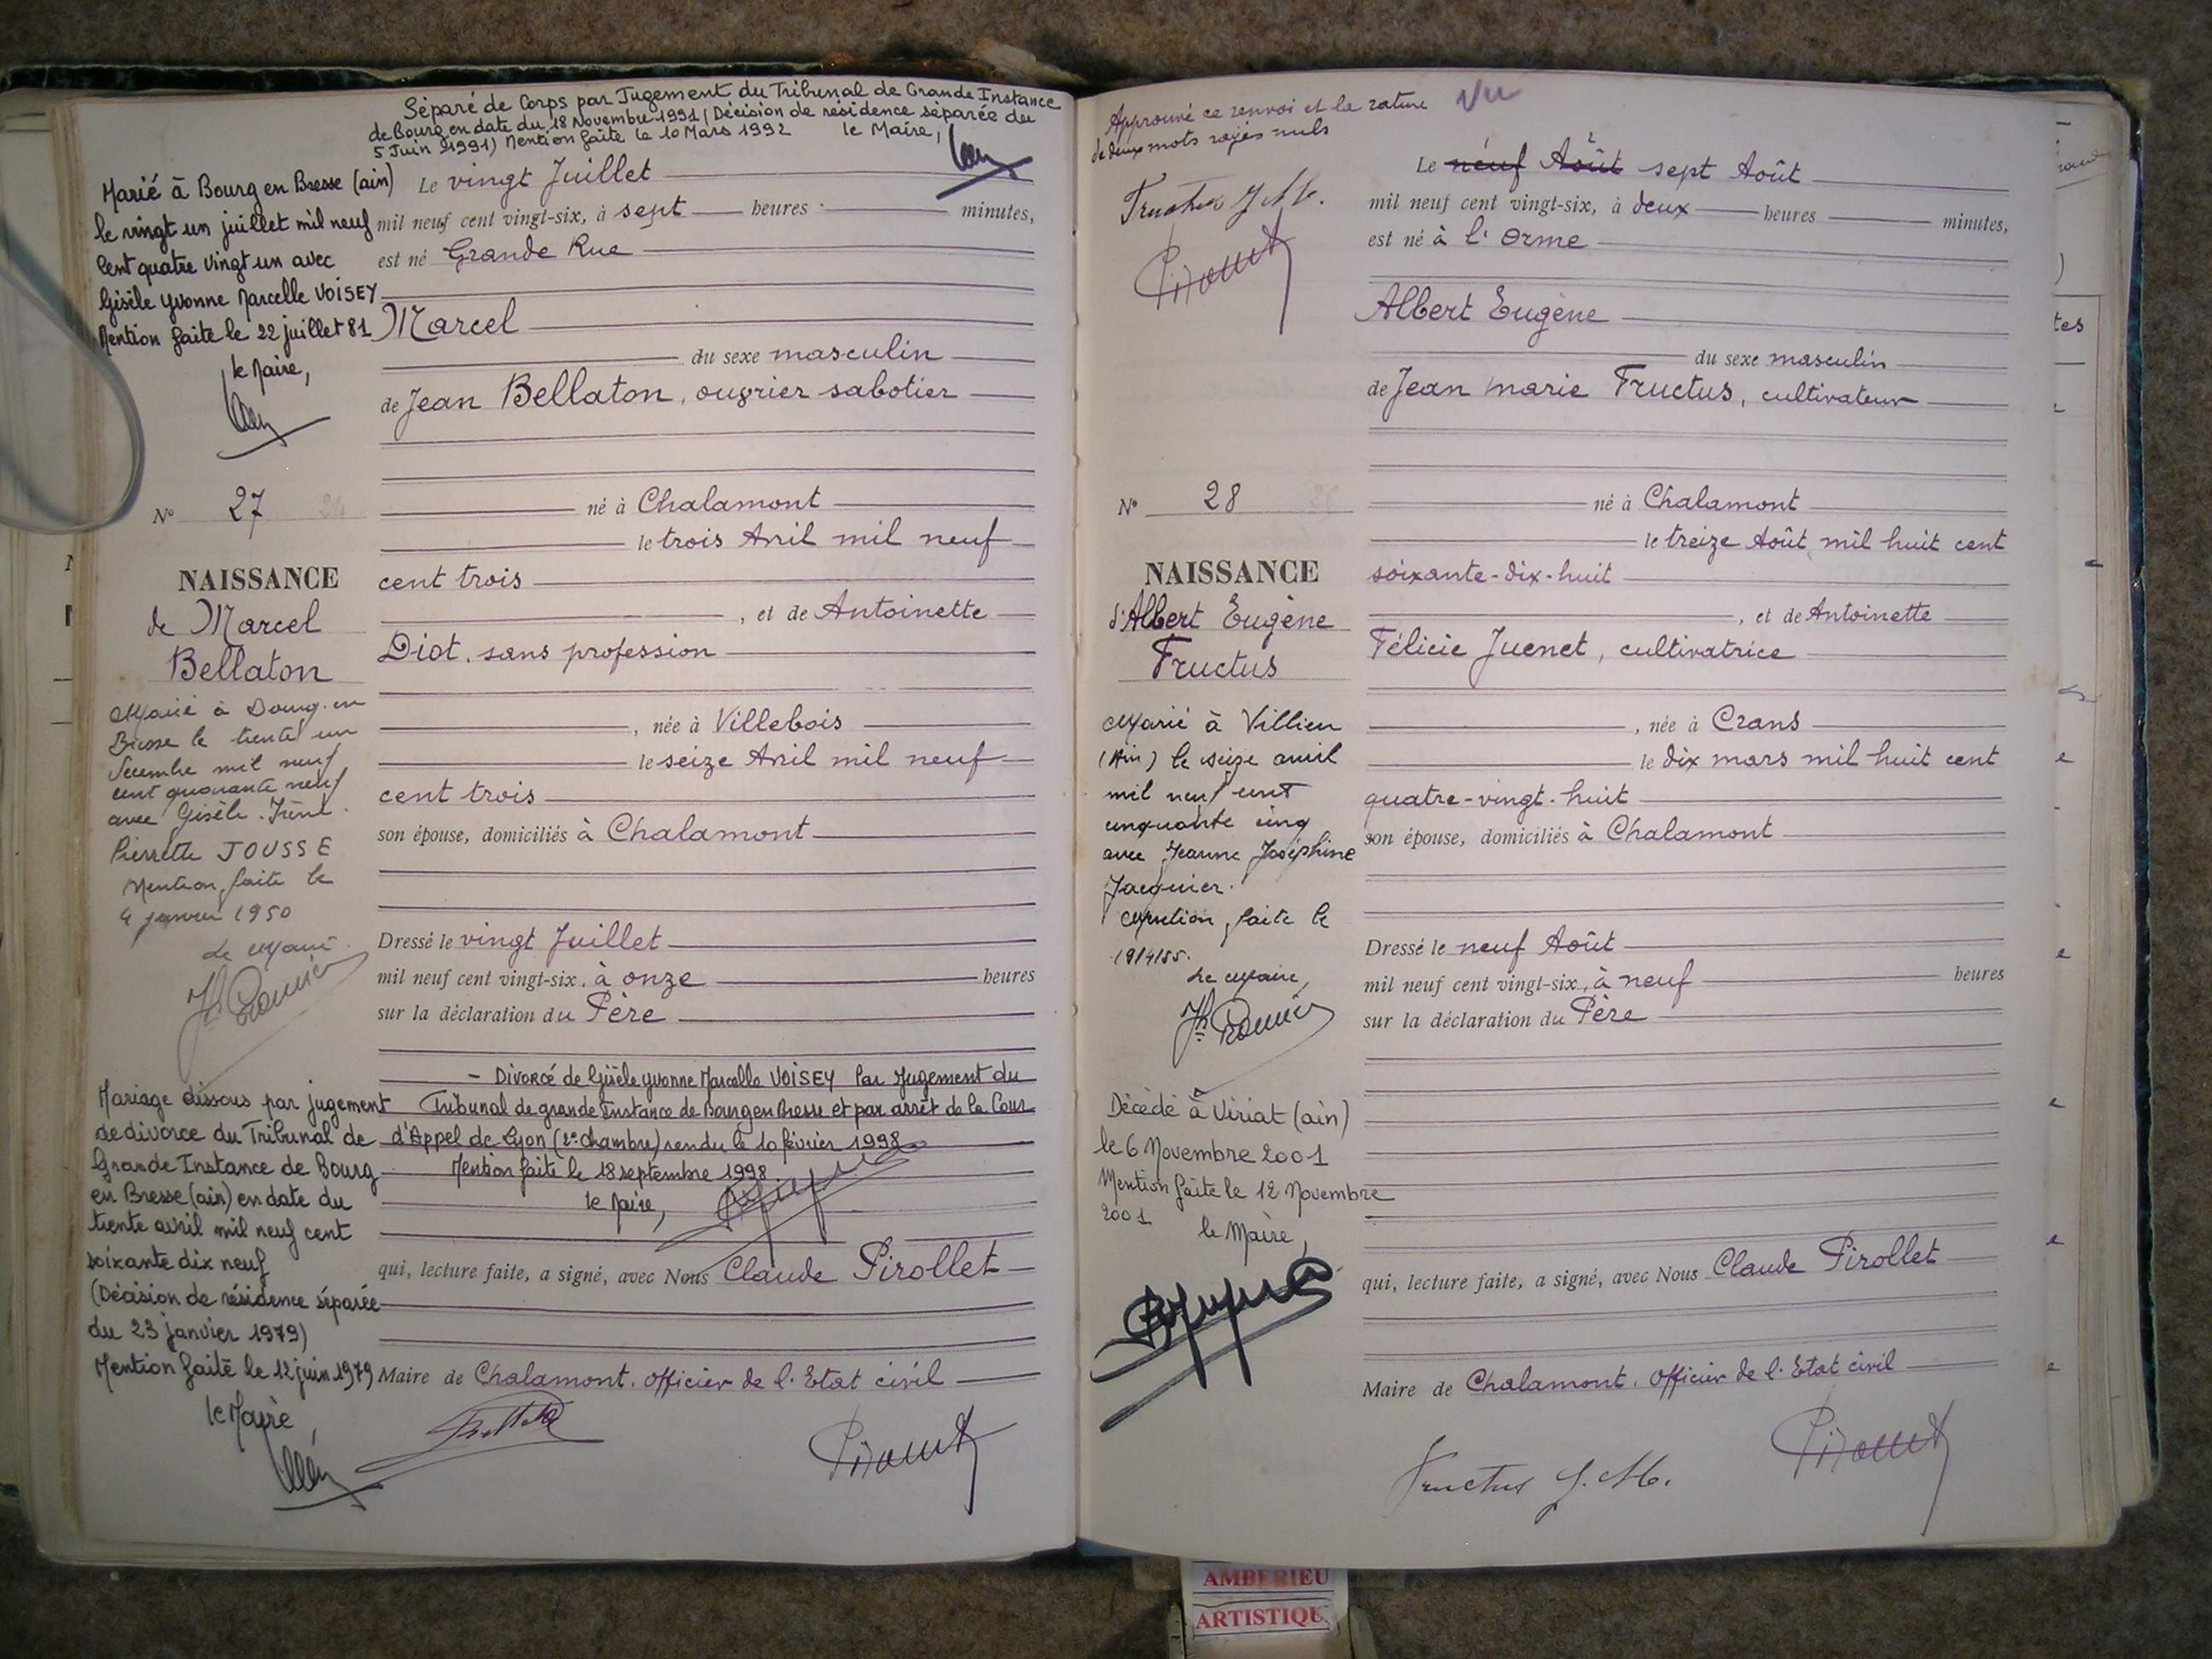 Séparé de Corps par Jugement du Tribunal de Grande Instance
de Bourg en date du 18 Novembre 1991 (Décision de résidence séparée du
5 Juin 1991) Mention faite le 10 Mars 1992 le Maire,
Marié à Bourg en Bresse (ain)
le vingt un juillet mil neuf
Cent quatre vingt un avec
Gisèle Yvonne Marcelle VOISEY
Mention faite le 22 juillet 81
le Maire,
N° 27
NAISSANCE
de Marcel
Bellaton
Marié à Bourg-en
Bresse le trente un
Décembre mil neuf
cent quarante neuf
avec Gisèle Irène
Pierrette JOUSSE
Mention faite le
4 janvier 1950
Le Maire
Mariage dissous par jugement
de divorce du Tribunal de
Grande Instance de Bourg
en Bresse (ain) en date du
trente avril mil neuf cent
soixante dix neuf
(Décision de résidence séparée
du 23 janvier 1979)
Mention faite le 12 juin 1979
le Maire,
Le vingt Juillet
mil neuf cent vingt-six, à sept heures minutes,
est né Grande Rue
Marcel
du sexe masculin
de Jean Bellaton, ouvrier sabotier
né à Chalamont
le trois Avril mil neuf
cent trois
, et de Antoinette
Diot, sans profession
, née à Villebois
le seize Avril mil neuf
cent trois
son épouse, domiciliés à Chalamont
Dressé le vingt Juillet
mil neuf cent vingt-six, à onze heures
sur la déclaration du Père
- Divorcé de Gisèle Yvonne Marcelle VOISEY Par Jugement du
Tribunal de grande Instance de Bourg en Bresse et par arrêt de la Cour
d'Appel de Lyon (2e Chambre) rendu le 10 février 1998
Mention faite le 18 septembre 1998
le Maire,
qui, lecture faite, a signé, avec Nous Claude Pirollet
Maire de Chalamont, Officier de l'Etat civil
Approuvé ce renvoi et la rature Vu
de deux mots rayés nuls
Fructus J M.
N° 28
NAISSANCE
d'Albert Eugène
Fructus
Marié à Villieu
(Ain) le seize avril
mil neuf cent
cinquante cinq
avec Jeanne Joséphine
Jacquier.
Mention faite le
19/4/55.
Le Maire,
Décédé à Viriat (ain)
le 6 Novembre 2001
Mention faite le 12 Novembre
2001
le Maire,
Le neuf Août sept Août
mil neuf cent vingt-six, à deux heures minutes,
est né à l'Orme
Albert Eugène
du sexe masculin
de Jean Marie Fructus, cultivateur
né à Chalamont
le treize Août mil huit cent
soixante-dix-huit
, et de Antoinette
Félicie Juenet, cultivatrice
, née à Crans
le dix mars mil huit cent
quatre-vingt-huit
son épouse, domiciliés à Chalamont
Dressé le neuf Août
mil neuf cent vingt-six, à neuf heures
sur la déclaration du Père
qui, lecture faite, a signé, avec Nous Claude Pirollet
Maire de Chalamont, Officier de l'Etat civil
Fructus J. M.
AMBERIEU
ARTISTIQU